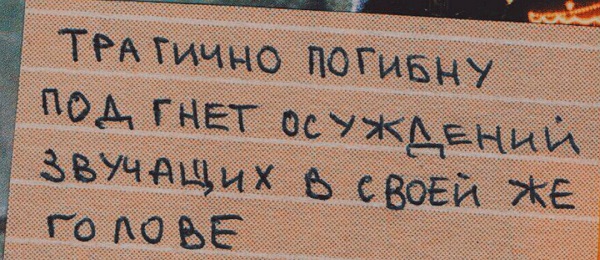 ТРАГИЧНО ПОГИБНУ
ПОД ГНЕТ ОСУЖДЕНИЙ
ЗВУЧАЩИХ В СВОЕЙ ЖЕ
ГОЛОВЕ